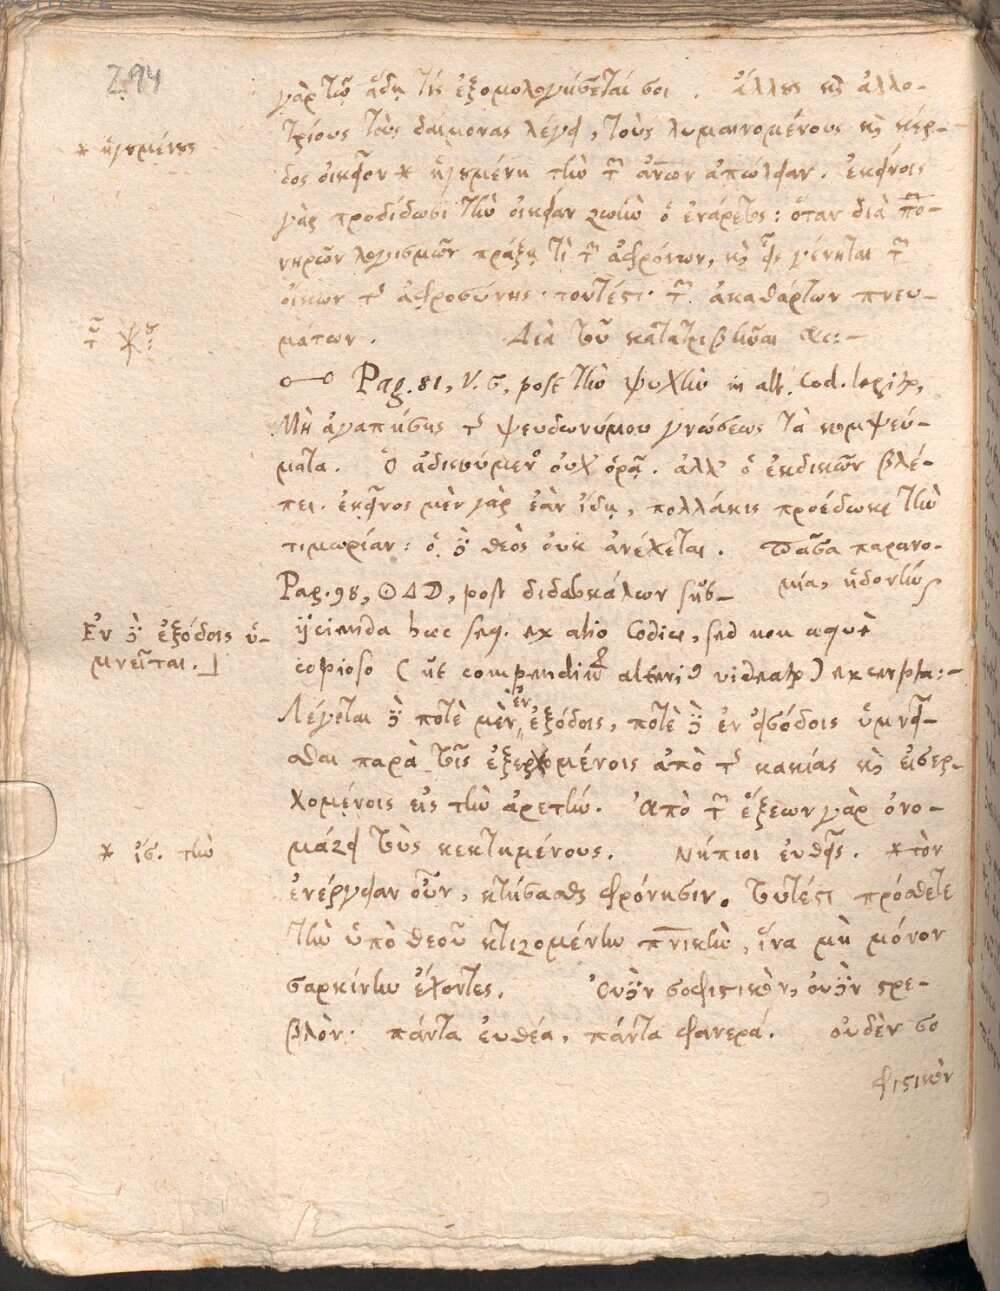 294
γὰρ τῷ ἅδῃ τίς ἐξομολογήσεταί σοι. ἄλλους κὶ ἀλλο-
τρίους τοὺς δαίμονας λέγει, τοὺς λυμαινομένους κὶ κέρ-
* ἡγουμένους
δος οἰκεῖον * ἡγουμένη τὴν τῶν ἀνων ἀπώλειαν. ἐκείνοις
γὰρ προδίδωσι τὴν οἰκείαν ζωὴν ὁ ἐνάρετος: ὅταν διὰ πο-
νηρῶν λογισμῶν πράξῃ τὶ τῶν ἀφρόνων, κὶ εἷς γένηται τῶν
οἴκων τῆς ἀφροσύνης· τουτέστι· τῶν ἀκαθάρτων πνευ-
μάτων. Διὰ τοῦ κατατριβῆναι &c:-
Pag. 81, V. 6, post τὴν ψυχὴν in alt. Cod. legitur,
Μὴ ἀγαπήσῃς τῆς ψευδωνύμου γνώσεως τὰ κομψεύ-
ματα. Ὁ ἀδικούμενος οὐχ ὁρᾷ. ἀλλ' ὁ ἐκδικῶν βλέ-
πει. ἐκεῖνος μὲν γὰρ ἐὰν ἴδῃ, πολλάκις προέδωκε τὴν
τιμωρίαν: ὁ δὲ θεὸς οὐκ ἀνέχεται. Πᾶσα παρανο-
μία, ἡδοντὴ
Pag. 98, post διδασκάλων sub-
Ἐν δὲ ἐξόδοις ὑ-
μνεῖται.
ijcienda haec seq. ex alio Codice, sed non aequè
copioso (ut compendium alterius videatur) excerpta:-
Λέγεται δὲ ποτὲ μὲν ἐν ἐξόδοις, ποτὲ δὲ ἐν εἰσόδοις ὑμνεῖ-
σθαι παρὰ τοῖς ἐξερχομένοις ἀπὸ τῆς κακίας κὶ εἰσερ-
χομένοις εἰς τὴν ἀρετήν. Ἀπὸ τῶν ἕξεων γὰρ ὀνο-
μάζει τοὺς κεκτημένους. Νήπιοι εὐθεῖς. * τὸν
* ἰσ. τὴν
ἐνέργειαν οὖν, κτήσασθε φρόνησιν. τουτέστι πρόσθετε
τὴν ὑπὸ θεοῦ κτιζομένην πνικὴν, ἵνα μὴ μόνον
σαρκίνην ἔχοντες. Οὐδὲν σοφιστικὸν, οὐδὲν στρε-
βλὸν· πάντα εὐθέα, πάντα φανερά. οὐδὲν σο
φιστικὸν